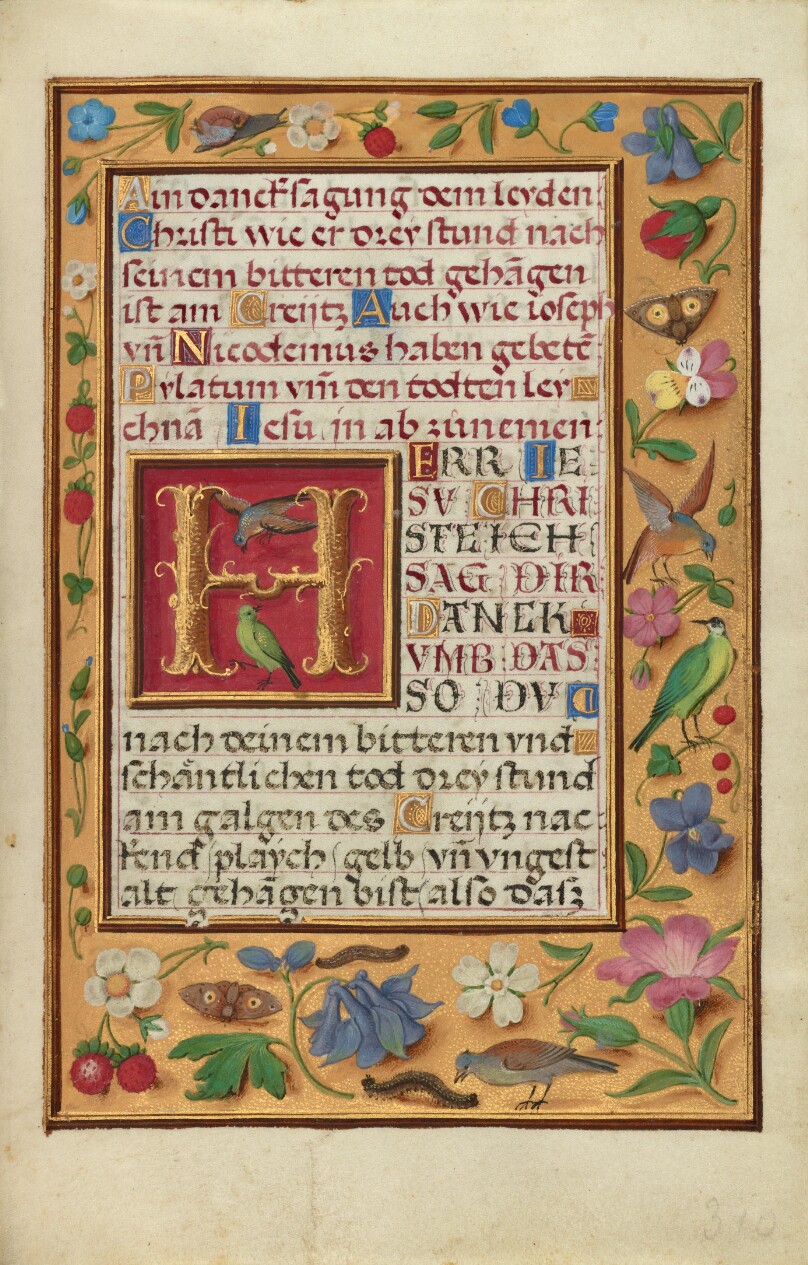 Ain danckſagung dem leyden
Chriſti wie er drey ſtund nach
ſeinem bitteren tod gehāgen
iſt am Creijtz Auch wie ioſeph
vn̄ Nicodemus haben gebetē
Pylatum vm̄ den todten ley
chnā Ieſu in ab zůnemen
HERR IE
SV CHRI
STE ICH
SAG DIR
DANCK
VMB DAS
SO DV
nach deinem bitteren vnd
ſchåntlichen tod drey ſtund
am galgen des Creijtz nac
kend playch gelb vn̄ vngeſt
alt gehāgen biſt alſo daſz
310